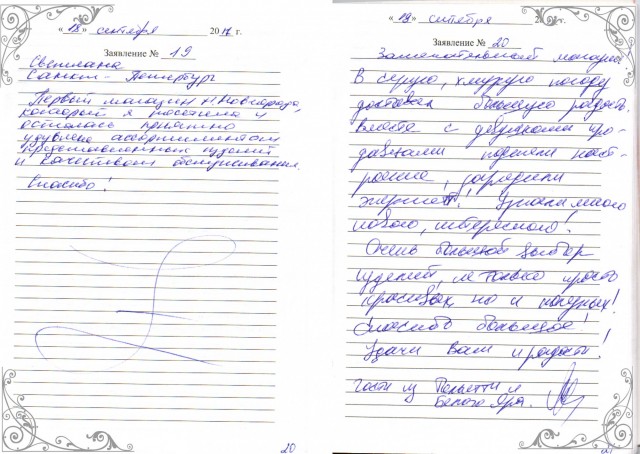 « 18 » сентября 2017 г.
Заявление № 19
Светлана
Санкт-Петербург
Первый магазин Н.Новгорода,
который я посетила и
осталась приятно
удивлена ассортиментом
представленных изделий
и качеством обслуживания.
Спасибо!
20
« 19 » сентября 20 г.
Заявление № 20
Замечательный магазин!
В серую, хмурую погоду
доставил большую радость.
Вместе с девушками про-
давцами подняли наст-
роение, зарядили
Узнали много
нового, интересного!
Очень большой выбор
изделий, не только просто
красивых, но и полезных!
Спасибо большое!
Удачи Вам и радости!
Гости из Тольятти и
Белого Яра.
21